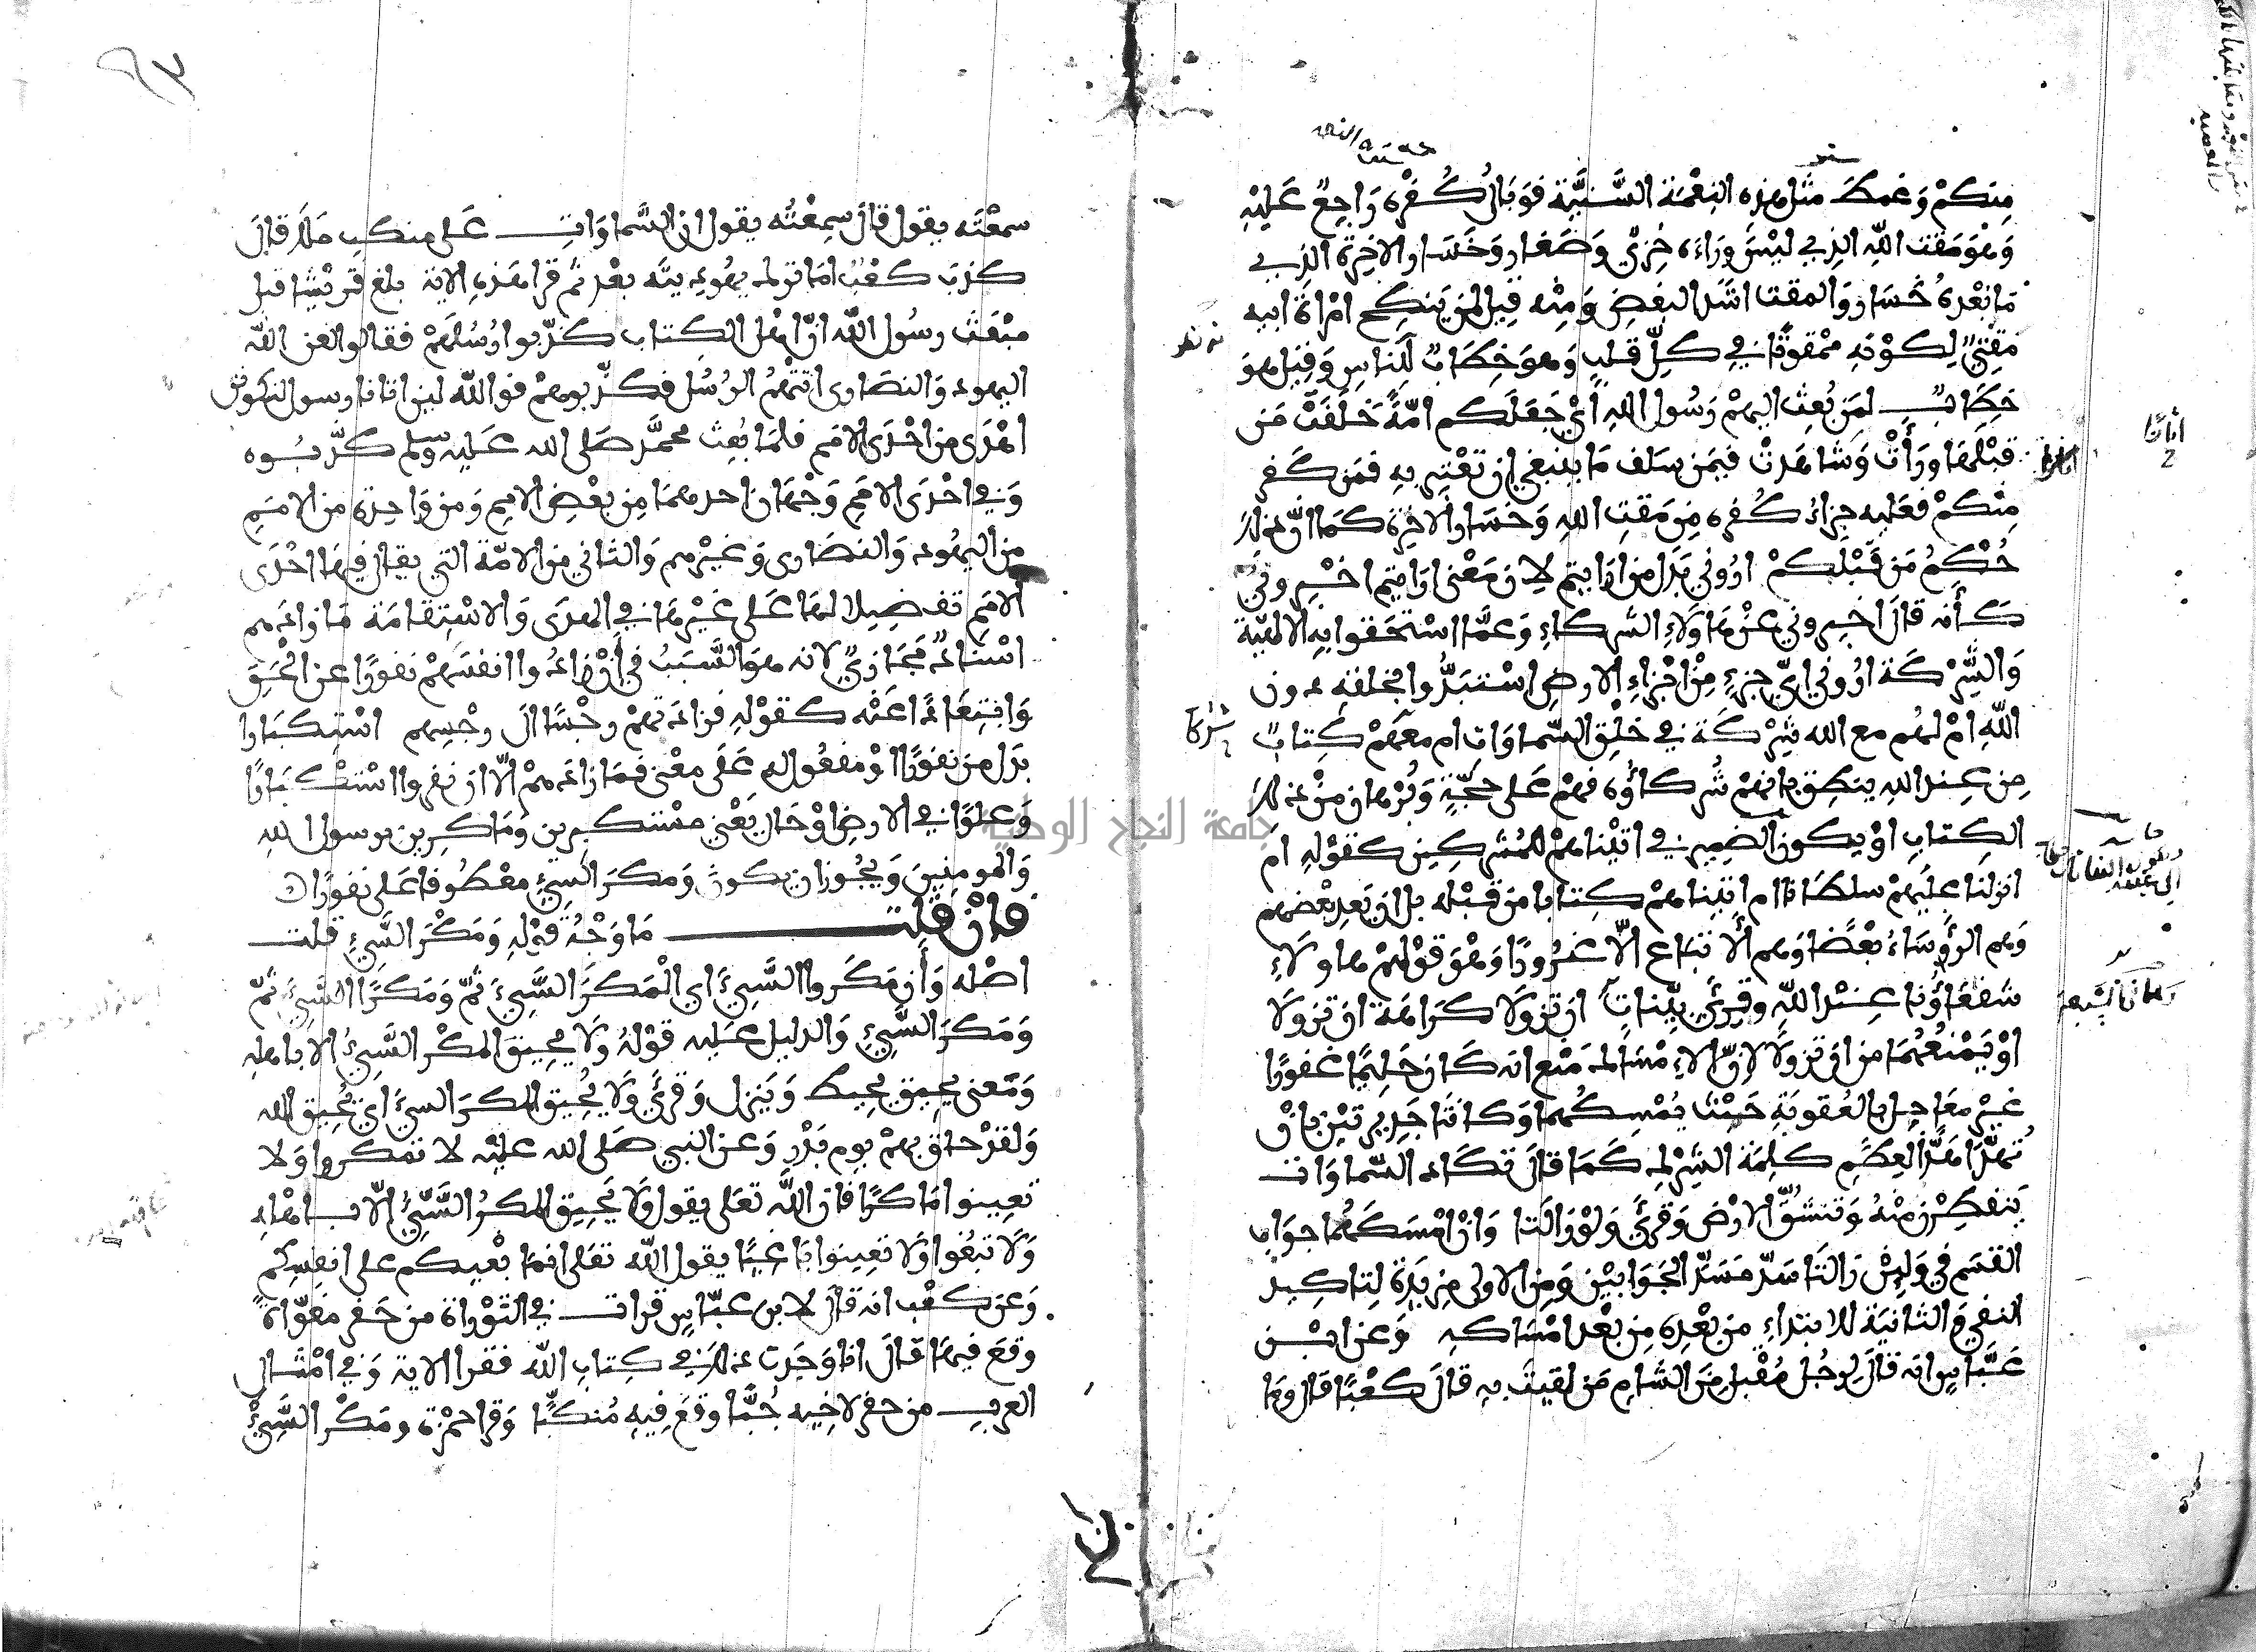 منكم وغمط مثل هذه النعمة السنية فوبال كفره راجع عليه
وهو مقت الله الذي ليس وراءه خزي وصغار وخسار الاخرة الذي
ما بعده خسار والمقت اشد البغض ومنه قيل لمن ينكح امراة ابيه
مقتي لكونه ممقوتا في كل قلب وهو خطاب للناس وقيل هو
خطاب لمن بعث اليهم رسول الله اي جعلكم امة خلفت من
قبلها ورأت وشاهدت فيمن سلف ما ينبغي ان تعتبر به فمن كفر
منكم فعليه جزاء كفره من مقت الله وخسار الاخرة كما ان ذلك
حكم من قبلكم اروني بدل من ارايتم لان معنى ارايتم اخبروني
كأنه قال اخبروني عن هاولاء الشركاء وعما استحقوا به الالهية
والشركة اروني اي جزء من اجزاء الارض استبدوا بخلقه دون
الله ام لهم مع الله شركة في خلق السماوات ام معهم كتاب
من عند الله ينطق بانهم شركاؤه فهم على حجة وبرهان من ذلك
الكتاب او يكون الضمير في اتيناهم للمشركين كقوله ام
انزلنا عليهم سلطانا ام اتيناهم كتابا من قبله بل ان يعد بعضهم
وهم الرؤساء بعضا وهم الاتباع الا غرورا وهو قولهم هاولاء
شفعاؤنا عند الله وقرئ بينات ان تزولا كراهة ان تزولا
او يمنعهما من ان تزولا لان الامساك منع انه كان حليما غفورا
غير معاجل بالعقوبة حيث يمسكهما وكانتا جديرتين بان
تهدا هدا لعظم كلمة الشرك كما قال تكاد السماوات
ينفطرن منه وتنشق الارض وقرئ ولو زالتا وان امسكهما جواب
القسم في ولين زالتا سد مسد الجوابين ومن الاولى مزيدة لتاكيد
النفي والثانية للابتداء من بعده من بعد امساكه وعن ابن
عباس انه قال لرجل مقبل من الشام من لقيت به قال كعبا قال وما
سمعته يقول قال سمعته يقول ان السماوات على منكب ملك قال
كذب كعب اما ترك يهوديته بعد ثم قرا هذه الاية بلغ قريشا قبل
مبعث رسول الله ان اهل الكتاب كذبوا رسلهم فقالوا لعن الله
اليهود والنصارى اتتهم الرسل فكذبوهم فوالله لين اتانا رسول لنكونن
اهدى من احدى الامم فلما بعث محمد صلى الله عليه وسلم كذبوه
وفي احدى الامم وجهان احدهما من بعض الامم ومن واحدة من الامم
من اليهود والنصارى وغيرهم والثاني من الامة التي يقال فيها احدى
الامم تفضيلا لها على غيرها في الهدى والاستقامة ما زادهم
اسناد مجازي لانه هو السبب في ان زادوا انفسهم نفورا عن الحق
وابتعادا عنه كقوله فزادتهم رجسا الى رجسهم استكبارا
بدل من نفورا او مفعول له على معنى فما زادهم الا ان نفروا استكبارا
وعلوا في الارض او حال بمعنى مستكبرين وماكرين برسول الله
والمومنين ويجوز ان يكون ومكر السيئ معطوفا على نفورا
فان قلت ما وجه قوله ومكر السيئ قلت
اصله وأن مكروا السيئ اي المكر السيئ ثم ومكرا السيئ ثم
ومكر السيئ والدليل عليه قوله ولا يحيق المكر السيئ الا باهله
ومعنى يحيق يحيط وينزل وقرئ ولا يحيق المكر السيئ اي يحيق الله
ولقد حاق بهم يوم بدر وعن النبي صلى الله عليه لا تمكروا ولا
تعينوا ماكرا فان الله تعلى يقول ولا يحيق المكر السيئ الا باهله
ولا تبغوا ولا تعينوا باغيا يقول الله تعلى انما بغيكم على انفسكم
وعن كعب انه قال لابن عباس قرات في التوراة من حفر مغواة
وقع فيها قال انا وجدت ذلك في كتاب الله فقرا الاية وفي امثال
العرب من حفر لاخيه جبا وقع فيه منكبا وقرا حمزة ومكر السيئ
جامعة النجاح الوطنية